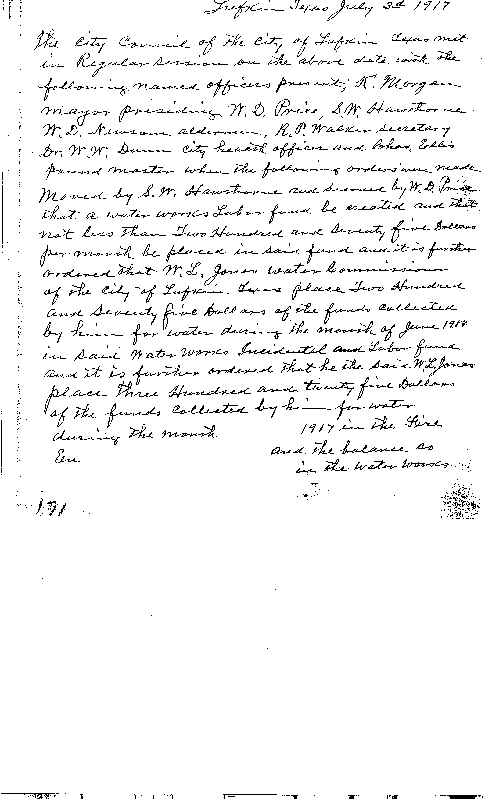 Lufkin Texas July 3rd 1917
The City Council of the City of Lufkin Texas met
in Regular session on the above date with the
following named officers present; K. Morgan
Mayor presiding W. D. Price, S.W. Hawthorne
W. D. Newsom aldermen, R. P. Walker Secretary
Dr. W. W. Dunn City health officer and Ellis
pound master when the following orders were made
Moved by S. W. Hawthorne and second by W. D. Price
that a water works Labor fund be created and that
not less than Two Hundred and Seventy five Dollars
per month be placed in said fund and it is further
ordered that W. L. Jones Water Commissioner
of the City of Lufkin Texas place Two Hundred
and Seventy five Dollars of the funds collected
by him for water during the month of June 1917
in said Water Works Incidental and Labor fund
and it is further ordered that he the said W. L. Jones
place three Hundred and twenty five Dollars
of the funds collected by him for water
during the month 1917 in the Fire
and the balance so
in the water works
191